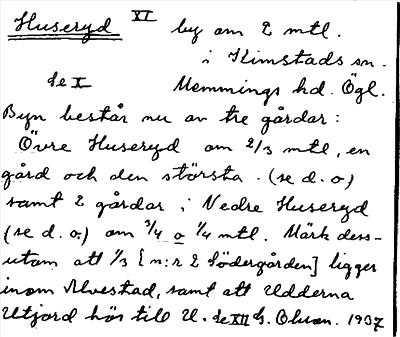 Huseryd XI by om 2 mtl.
i Kimstads sn.
se X Memmings hd. Ögl.
Byn består nu av tre gårdar:
Övre Huseryd om 2/3 mtl, en
gård och den största. (se d. o)
samt 2 gårdar i Nedre Huseryd
(se d. o:) om 3/4 o 1/4 mtl. Märk dess-
utom att 1/3 [n:r 2 Södergården] ligger
inom Alvestad, samt att Udderna
Utjord hör till U. se XII G. Olsson. 1937